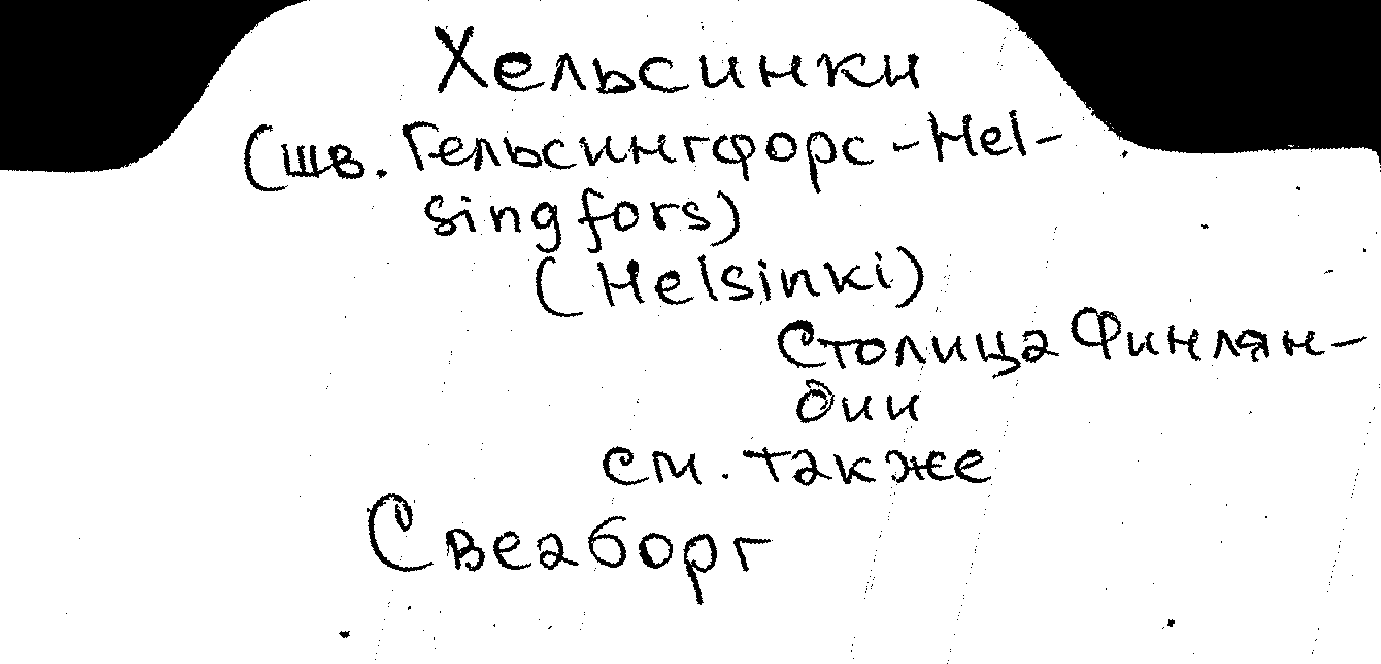 Хельсинки
(шв. Гельсингфорс - Hel-
singfors)
(Helsinki)
Столица Финлян-
дии
см. также
Свеаборг